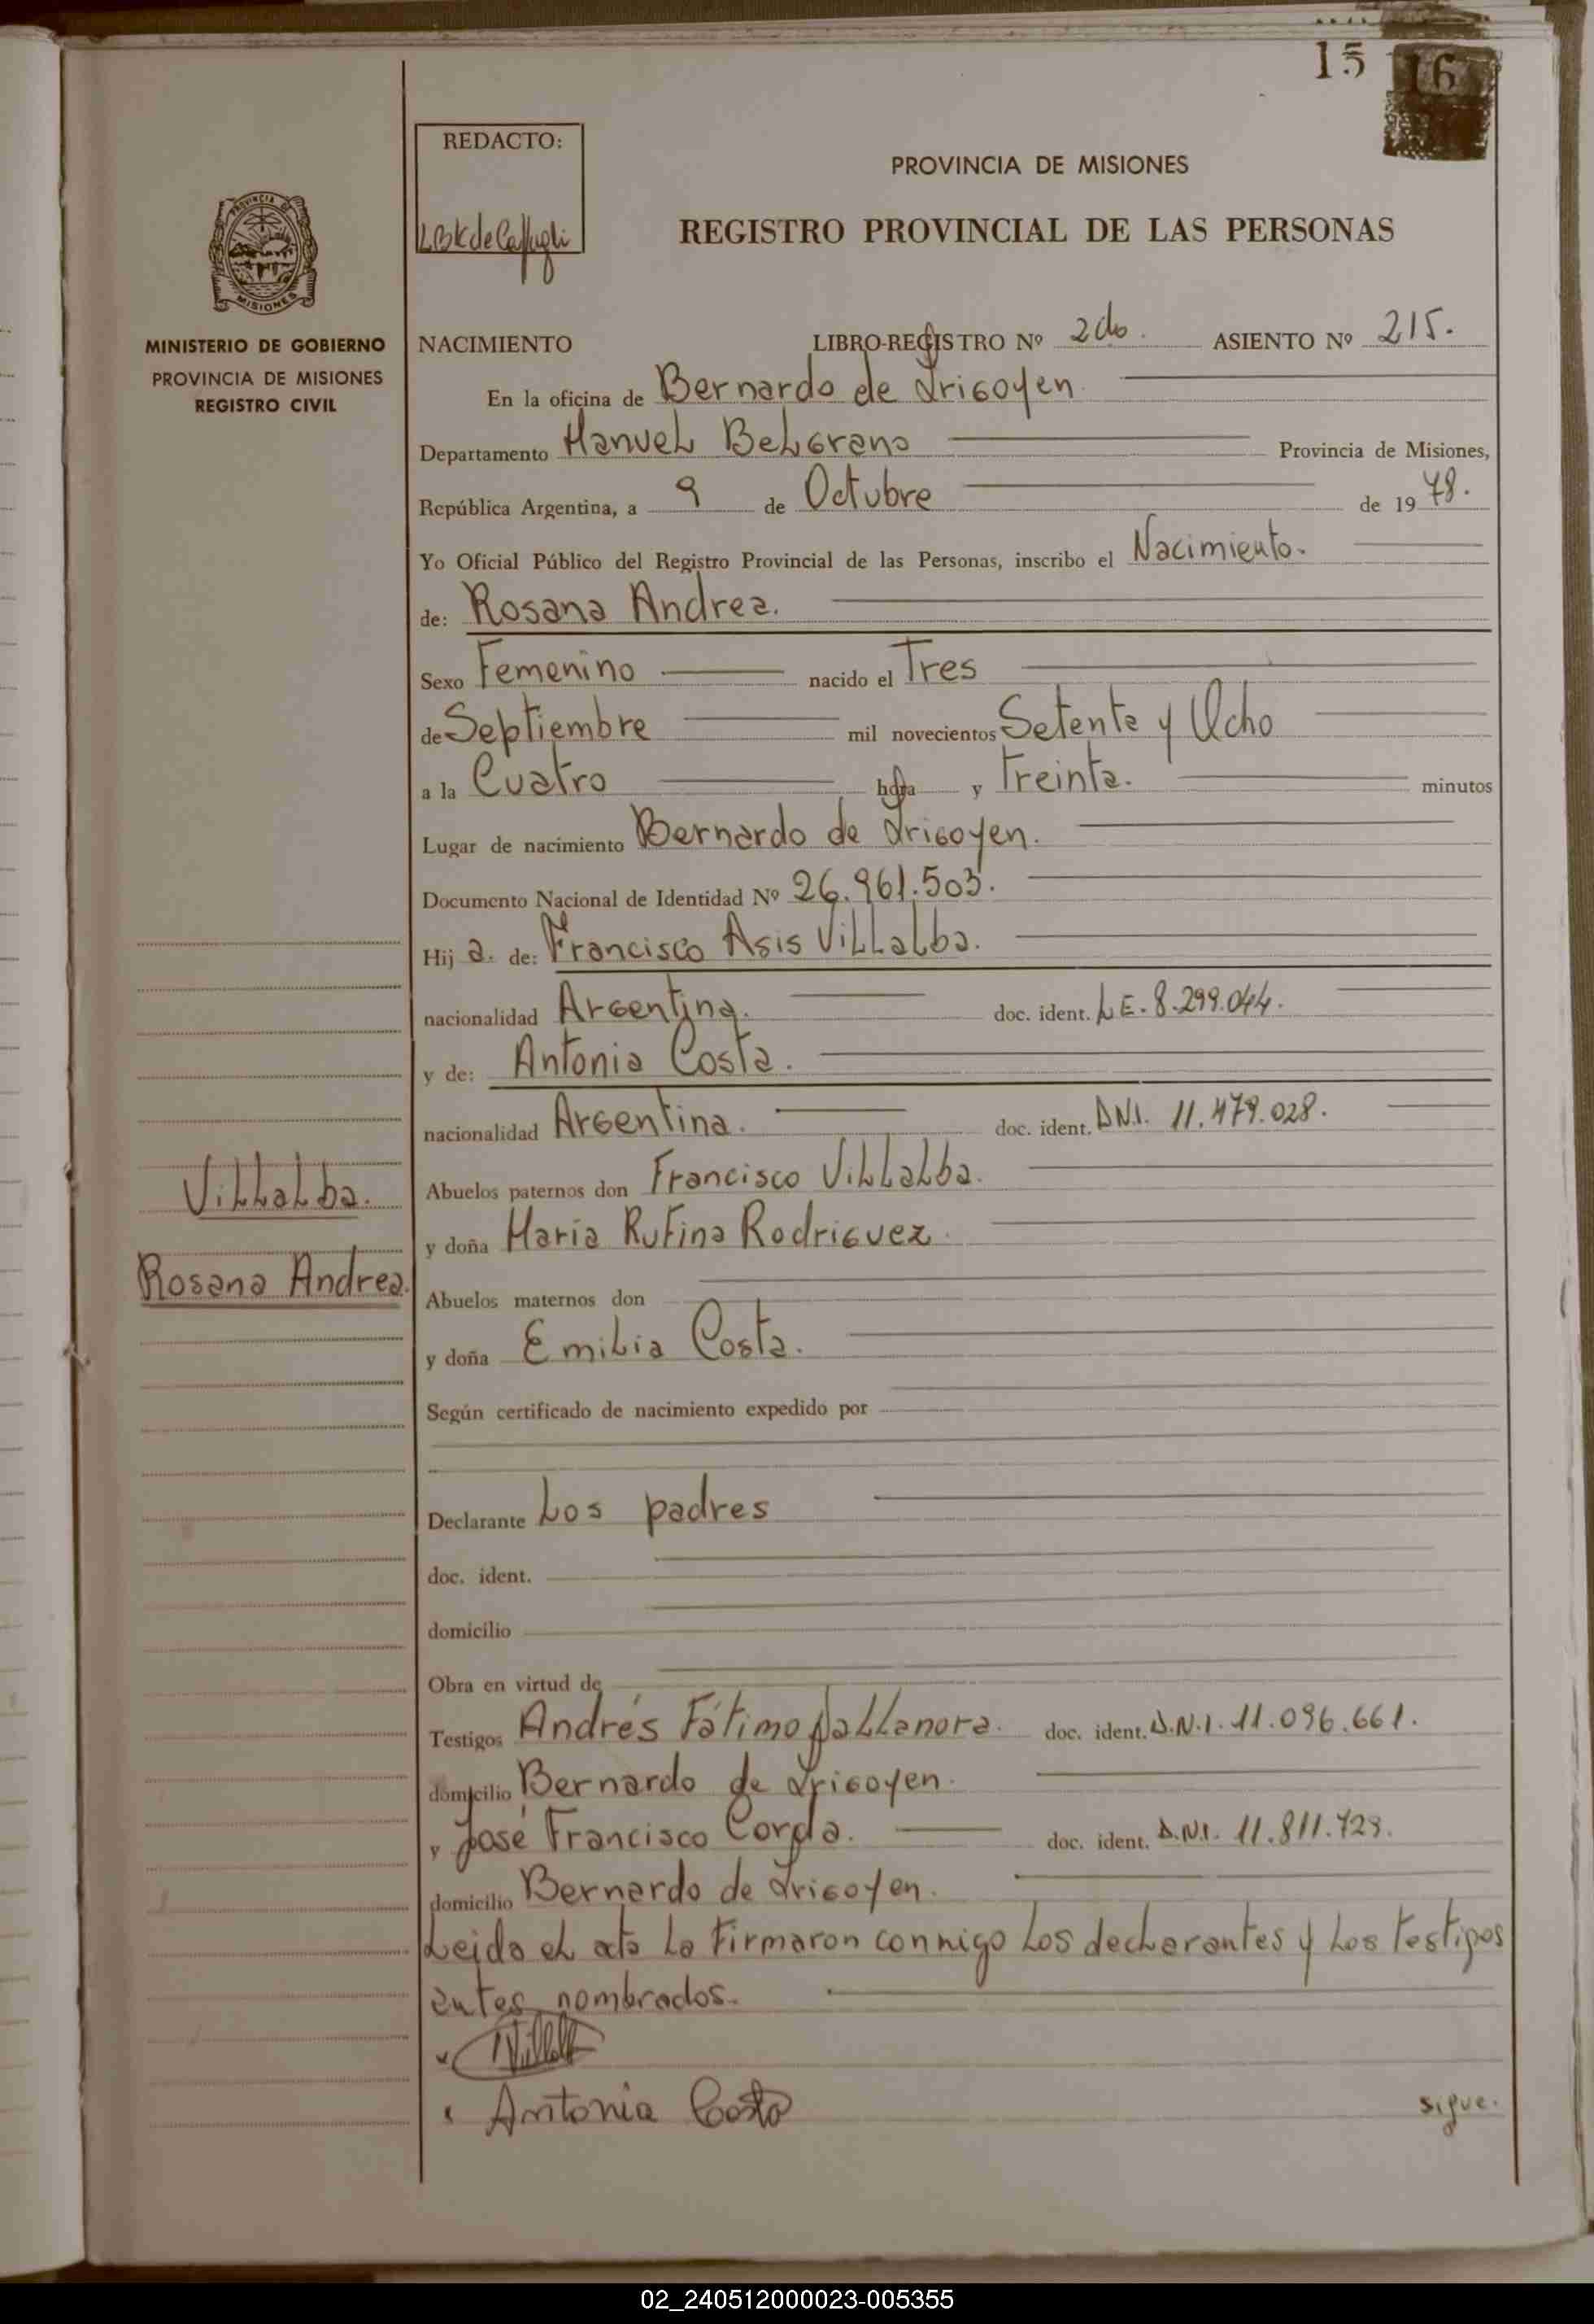 15 16
REDACTO:
PROVINCIA DE MISIONES
REGISTRO PROVINCIAL DE LAS PERSONAS
PROVINCIA DE
MISIONES
MINISTERIO DE GOBIERNO
PROVINCIA DE MISIONES
REGISTRO CIVIL
NACIMIENTO LIBRO-REGISTRO Nº 2do. ASIENTO Nº 215.
En la oficina de Bernardo de Irigoyen
Departamento Manuel Belgrano Provincia de Misiones,
República Argentina, a 9 de Octubre de 1978.
Yo Oficial Público del Registro Provincial de las Personas, inscribo el Nacimiento.
de: Rosana Andrea.
Sexo Femenino nacido el Tres
de Septiembre mil novecientos Setenta y Ocho
a la Cuatro hora y Treinta. minutos
Lugar de nacimiento Bernardo de Irigoyen.
Documento Nacional de Identidad Nº 26.961.503.
Hij a. de: Francisco Asis Villalba.
nacionalidad Argentina. doc. ident. L.E. 8.299.044.
y de: Antonia Costa.
nacionalidad Argentina. doc. ident. D.N.I. 11.479.028.
Abuelos paternos don Francisco Villalba.
y doña María Rufina Rodriguez
Villalba.
Rosana Andrea.
Abuelos maternos don
y doña Emilia Costa.
Según certificado de nacimiento expedido por
Declarante Los padres
doc. ident.
domicilio
Obra en virtud de
Testigos Andrés Fátimo Dallanora. doc. ident. D.N.I. 11.096.661.
domicilio Bernardo de Irigoyen.
y José Francisco Corda. doc. ident. D.N.I. 11.811.729.
domicilio Bernardo de Irigoyen.
Leida el acta la firmaron conmigo los declarantes y los testigos
antes nombrados.
Antonia Costa
sigue.
02_240512000023-005355